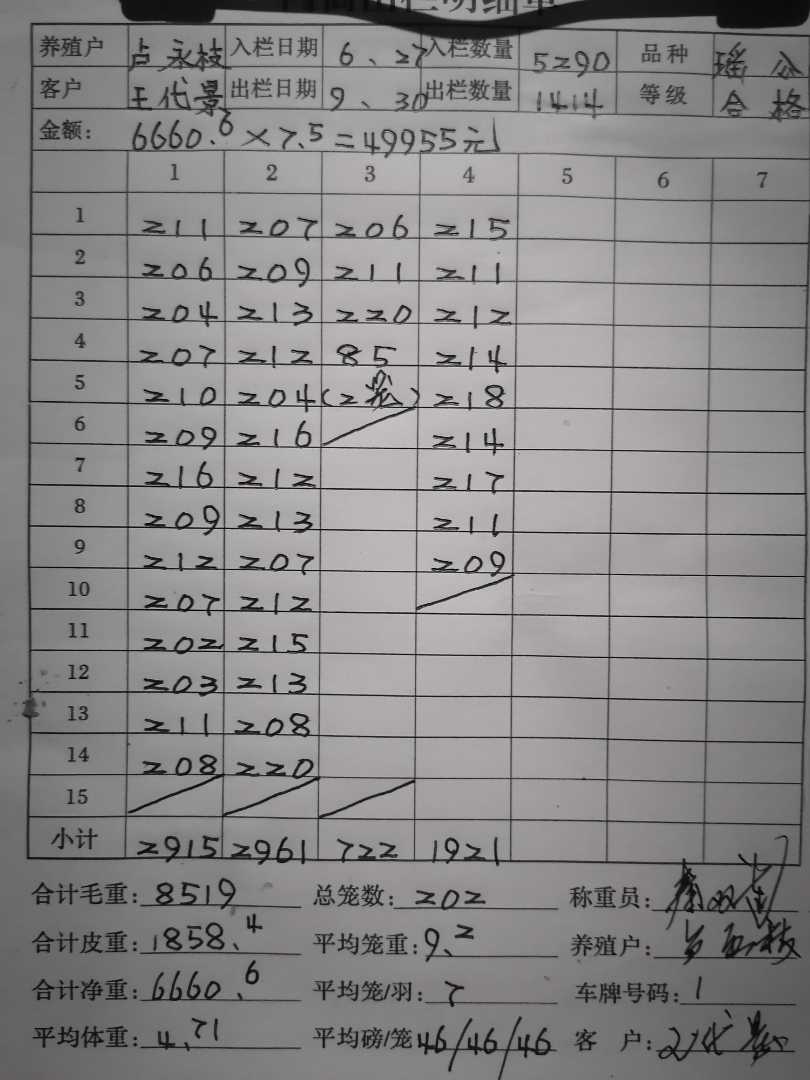 养殖户 卢永枝 入栏日期 6、27 入栏数量 5290 品种 瑶公
客户 王代景 出栏日期 9、30 出栏数量 1414 等级 合格
金额: 6660.6×7.5=49955元
1 2 3 4 5 6 7
1 211 207 206 215
2 206 209 211 211
3 204 213 220 212
4 207 212 85 214
5 210 204 (2笼) 218
6 209 216 214
7 216 212 217
8 209 213 211
9 212 207 209
10 207 212
11 202 215
12 203 213
13 211 208
14 208 220
15
小计 2915 2961 722 1921
合计毛重: 8519 总笼数: 202 称重员:
合计皮重: 1858.4 平均笼重: 9.2 养殖户:
合计净重: 6660.6 平均笼/羽: 7 车牌号码: 1
平均体重: 4.71 平均磅/笼 46/46/46 客 户: